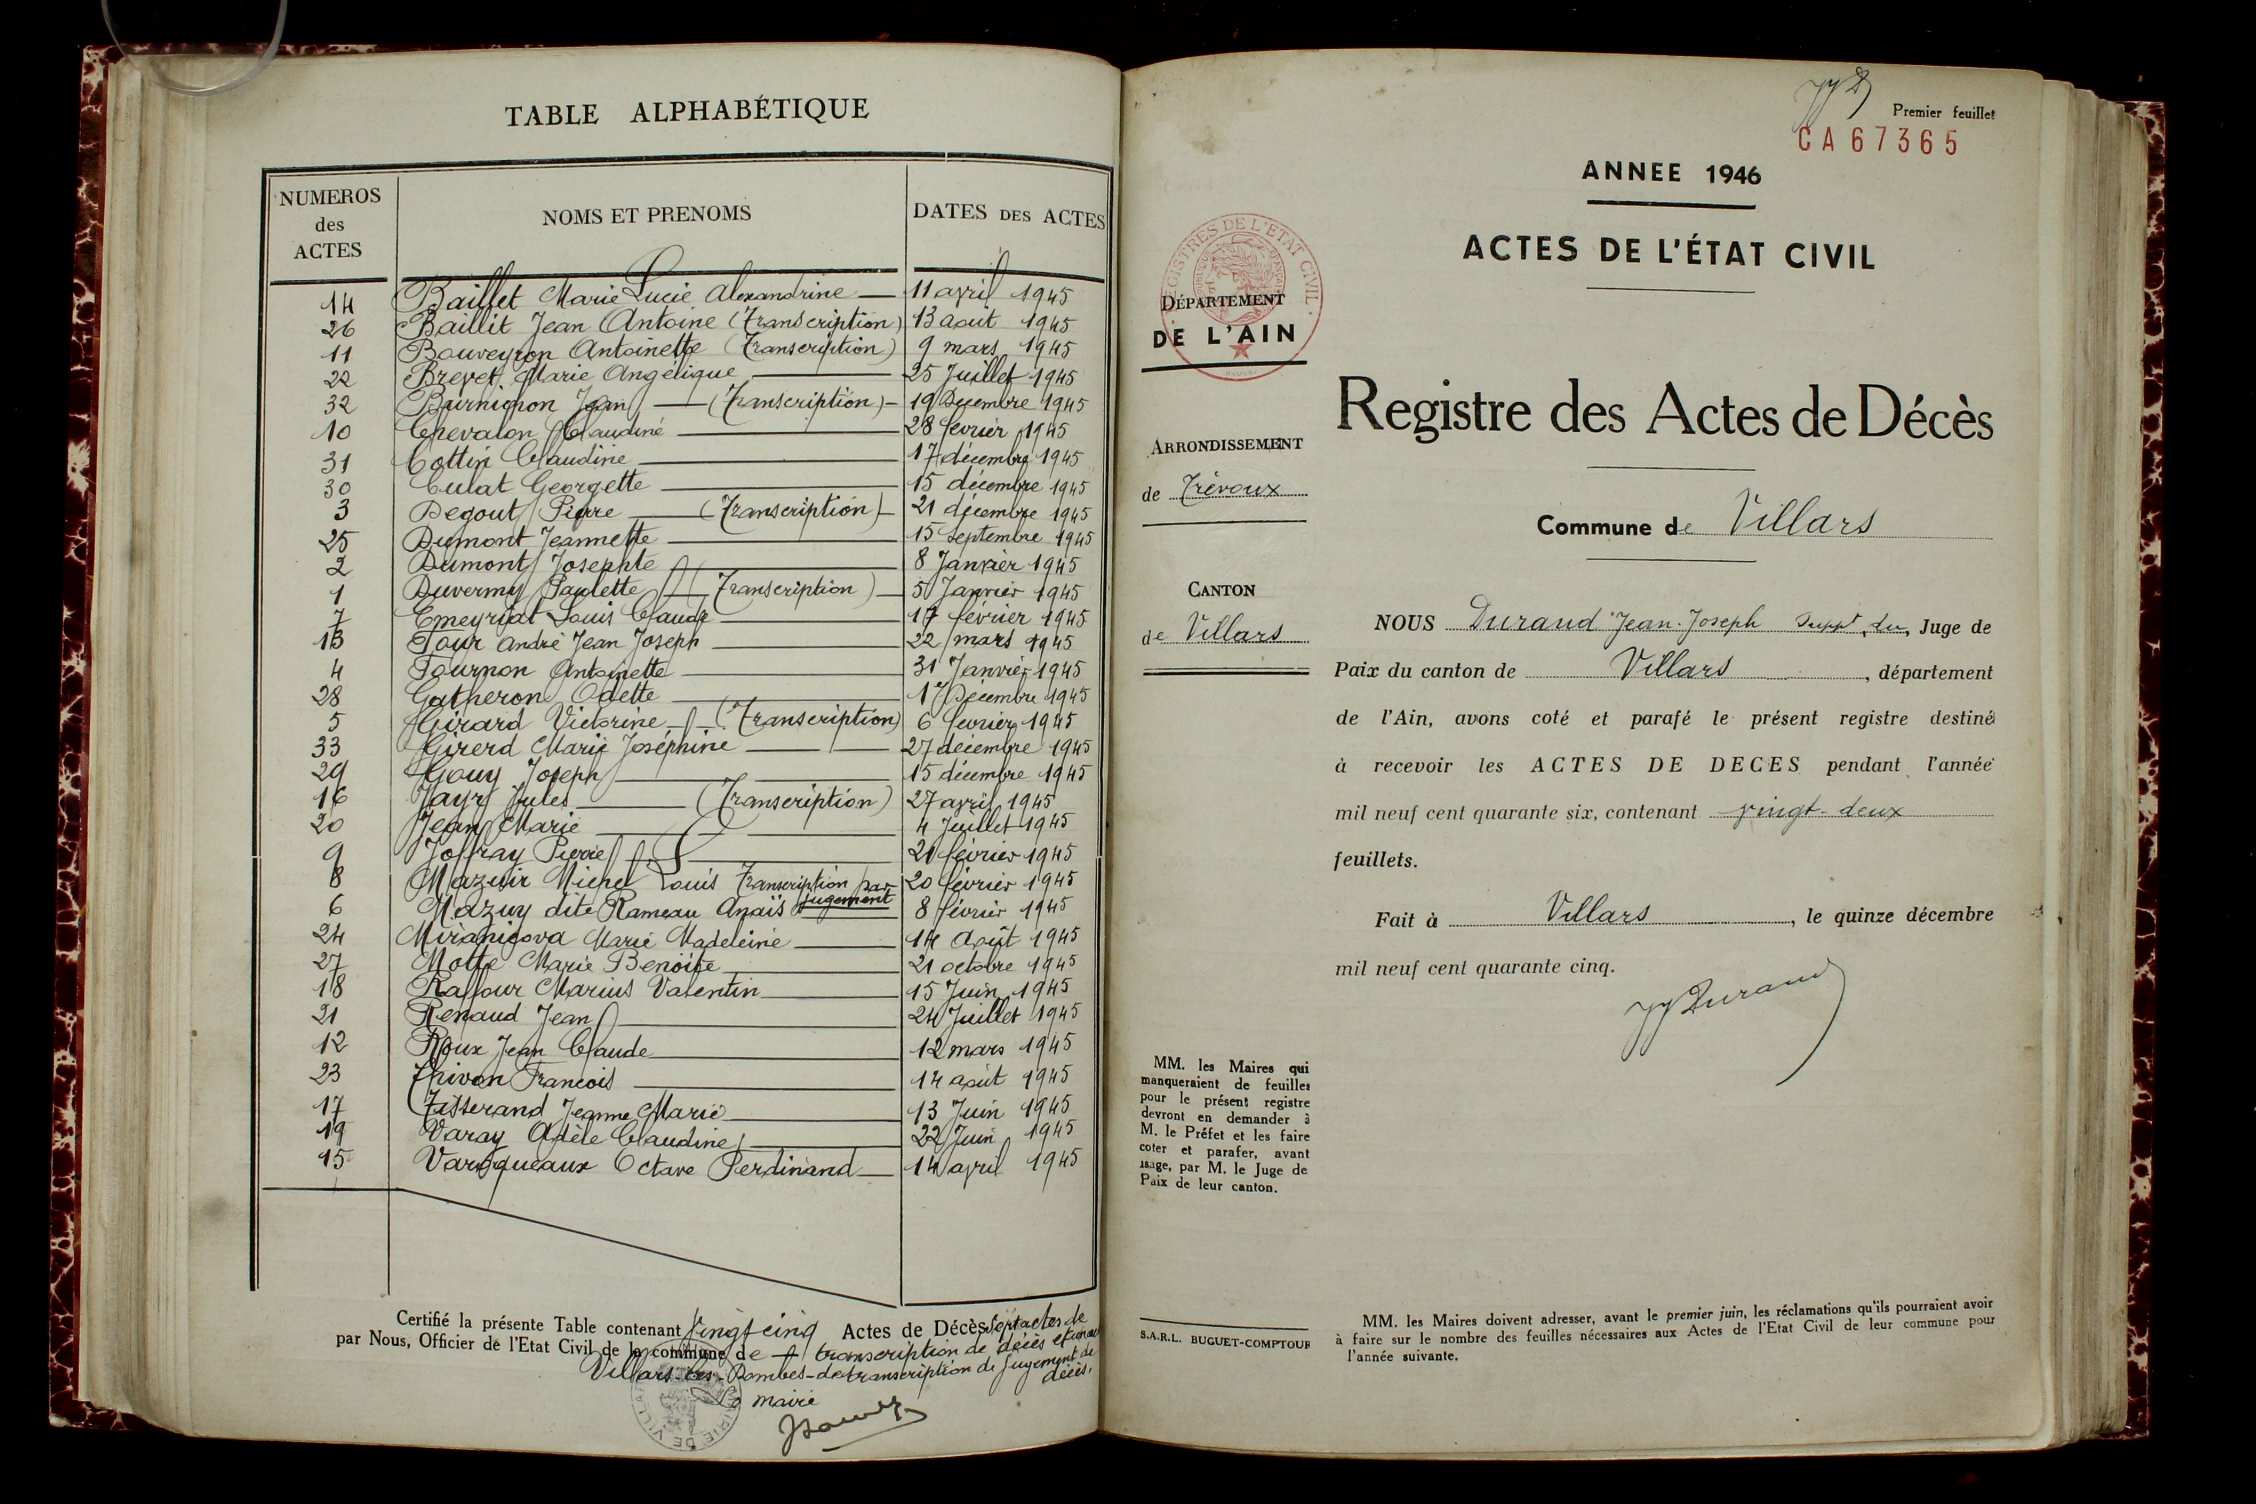 TABLE ALPHABÉTIQUE
NUMEROS des ACTES NOMS ET PRENOMS DATES DES ACTES
14 Baillet Marie Lucie Alexandrine 11 avril 1945
26 Baillit Jean Antoine (Transcription) 13 août 1945
11 Bouveyron Antoinette (Transcription) 9 mars 1945
22 Brevet Marie Angélique 25 Juillet 1945
32 Burnichon Jean (Transcription) 19 Décembre 1945
10 Chevalon Claudine 28 février 1945
31 Cottin Claudine 17 décembre 1945
30 Culat Georgette 15 décembre 1945
3 Degout Pierre (Transcription) 21 décembre 1945
25 Dumont Jeannette 15 Septembre 1945
2 Dumont Josephte 8 Janvier 1945
1 Duvermy Paulette (Transcription) 5 Janvier 1945
7 Emeyriat Louis Claude 17 février 1945
13 Four André Jean Joseph 22 mars 1945
4 Fournon Antoinette 31 Janvier 1945
28 Gatheron Odette 17 Décembre 1945
5 Girard Victorine (Transcription) 6 février 1945
33 Girerd Marie Joséphine 27 décembre 1945
29 Gouy Joseph 15 décembre 1945
16 Jayr Jules (Transcription) 27 avril 1945
20 Jean Marie 4 Juillet 1945
9 Joffray Pierre 21 février 1945
8 Mazuir Michel Louis Transcription par jugement 20 février 1945
6 Mazuy dite Rameau Anaïs 8 février 1945
24 Miranicova Marie Madeleine 14 Août 1945
27 Motte Marie Benoite 21 octobre 1945
18 Raffour Marius Valentin 15 Juin 1945
21 Renaud Jean 24 Juillet 1945
12 Roux Jean Claude 12 mars 1945
23 Thivon François 14 août 1945
17 Tisserand Jeanne Marie 13 Juin 1945
19 Varay Adèle Claudine 22 Juin 1945
15 Varoqueaux Octave Ferdinand 14 avril 1945
Certifié la présente Table contenant vingt cinq Actes de Décès Sept actes de
par Nous, Officier de l'Etat Civil de la commune de transcription de décès et un acte
Villars-les-Dombes - de transcription de Jugement de
décès.
Le maire
Premier feuillet
CA67365
ANNEE 1946
ACTES DE L'ÉTAT CIVIL
REGISTRES DE L'ETAT CIVIL
DÉPARTEMENT
DE L'AIN
Registre des Actes de Décès
ARRONDISSEMENT
de Trévoux
Commune de Villars
CANTON
de Villars
NOUS Durand Jean-Joseph Suppt du Juge de
Paix du canton de Villars, département
de l'Ain, avons coté et parafé le présent registre destiné
à recevoir les ACTES DE DECES pendant l'année
mil neuf cent quarante six, contenant vingt-deux
feuillets.
Fait à Villars, le quinze décembre
mil neuf cent quarante cinq.
JJ Durand
MM. les Maires qui
manqueraient de feuilles
pour le présent registre
devront en demander à
M. le Préfet et les faire
coter et parafer, avant
usage, par M. le Juge de
Paix de leur canton.
S.A.R.L. BUGUET-COMPTOUR
MM. les Maires doivent adresser, avant le premier juin, les réclamations qu'ils pourraient avoir
à faire sur le nombre des feuilles nécessaires aux Actes de l'Etat Civil de leur commune pour
l'année suivante.